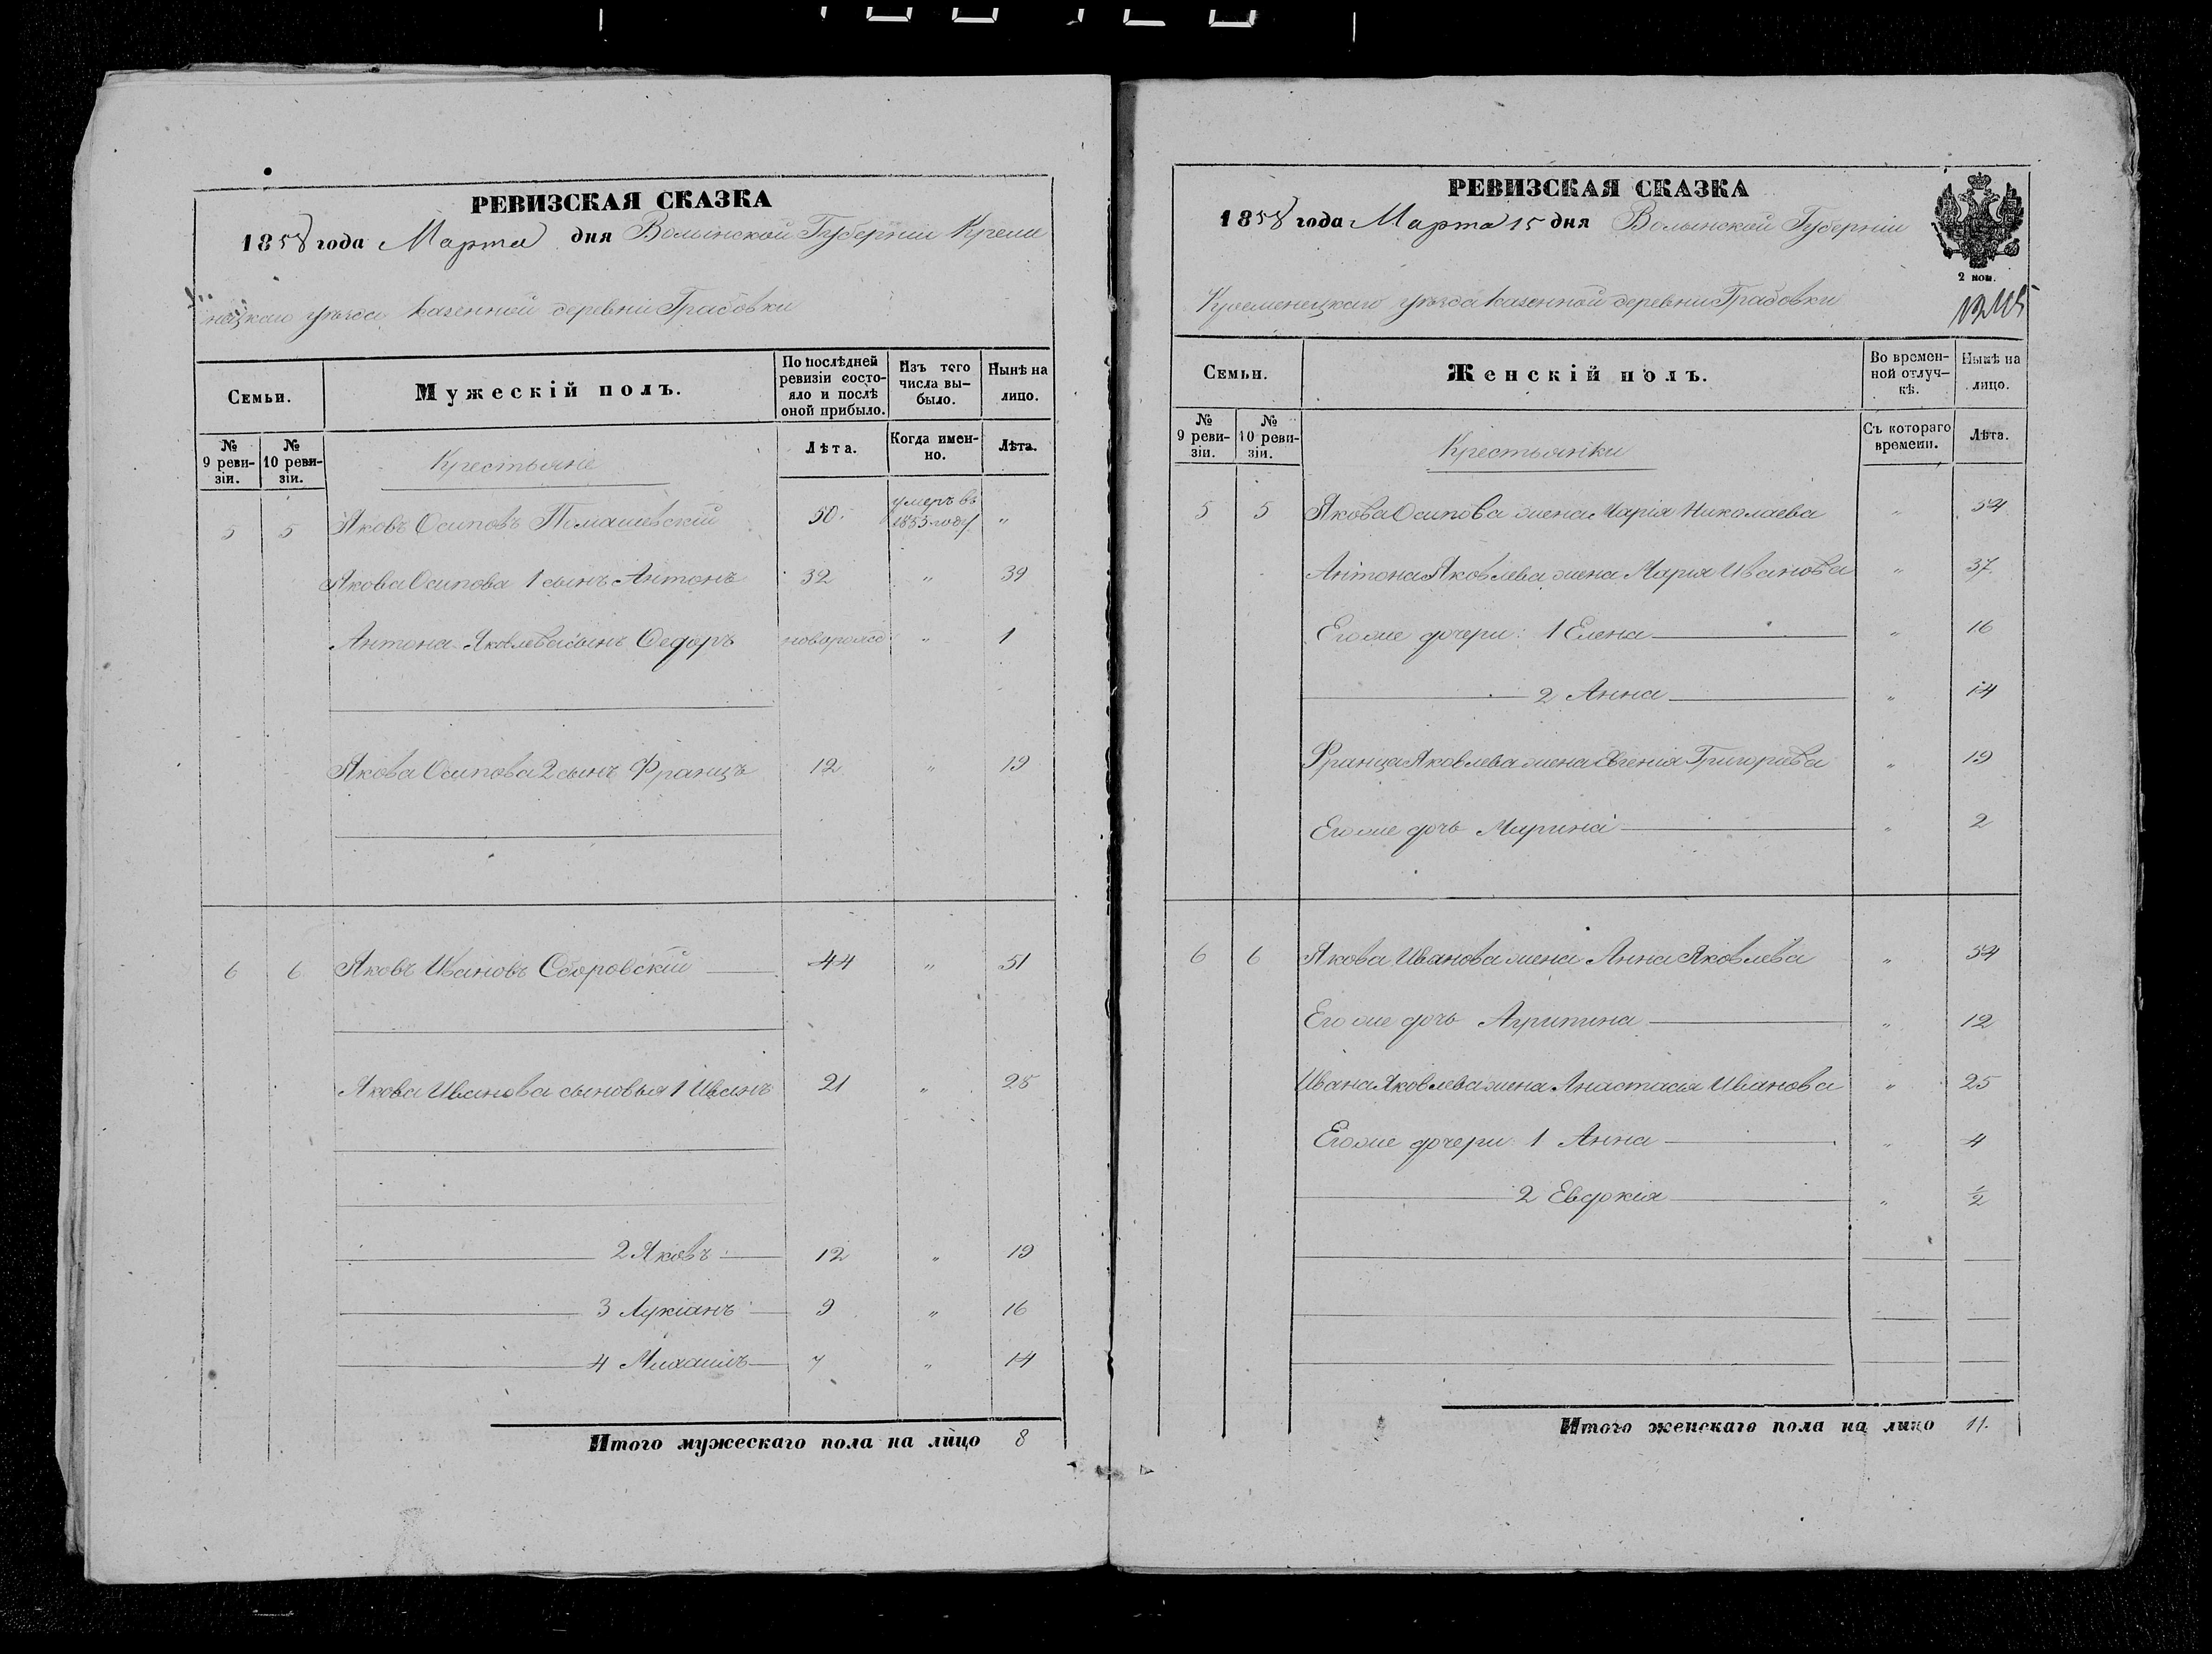 РЕВИЗСКАЯ СКАЗКА
1858 года Марта дня Волынской Губерніи Креме
нецкаго уѣзда казенной деревни Градовки
Семьи.
Мужескій полъ.
По послѣдней ревизіи состояло и послѣ оной прибыло.
Изъ того числа выбыло.
Нынѣ на лицо.
№ 9 ревизіи.
№ 10 ревизіи.
Крестьяне
Лѣта.
Когда именно.
Лѣта.
5 5 Яковъ Осиповъ 50 умеръ въ 1855 году "
Якова Осипова 1 сынъ Антонъ 32 " 39
Антона Яковлева сынъ Ѳедоръ новорожд " 1
Якова Осипова 2 сынъ Францъ 12 " 19
6 6 Яковъ Ивановъ 44 " 51
Якова Иванова сыновья 1 Иванъ 21 " 28
2 Яковъ 12 " 19
3 Лукіанъ 9 " 16
4 Михаилъ 7 " 14
Итого мужескаго пола на лицо 8
РЕВИЗСКАЯ СКАЗКА
1858 года Марта 15 дня Волынской Губерніи
2 коп.
Кременецкаго уѣзда казенной деревни Градовки
Семьи.
Женскій полъ.
Во временной отлучкѣ.
Нынѣ на лицо.
№ 9 ревизіи.
№ 10 ревизіи.
Крестьянки
Съ котораго времени.
Лѣта.
5 5 Якова Осипова жена Марія Николаева " 54
Антона Яковлева жена Марія Иванова " 37
Его же дочери: 1 Елена " 16
2 Анна " 14
Франца Яковлева жена Евгенія Григорьева " 19
Его же дочь Марина " 2
6 6 Якова Иванова жена Анна Яковлева " 54
Его же дочь Агрипина " 12
Ивана Яковлева жена Анастасія Иванова " 25
Его же дочери 1 Анна " 4
2 Евдокія " ½
Итого женскаго пола на лицо 11.